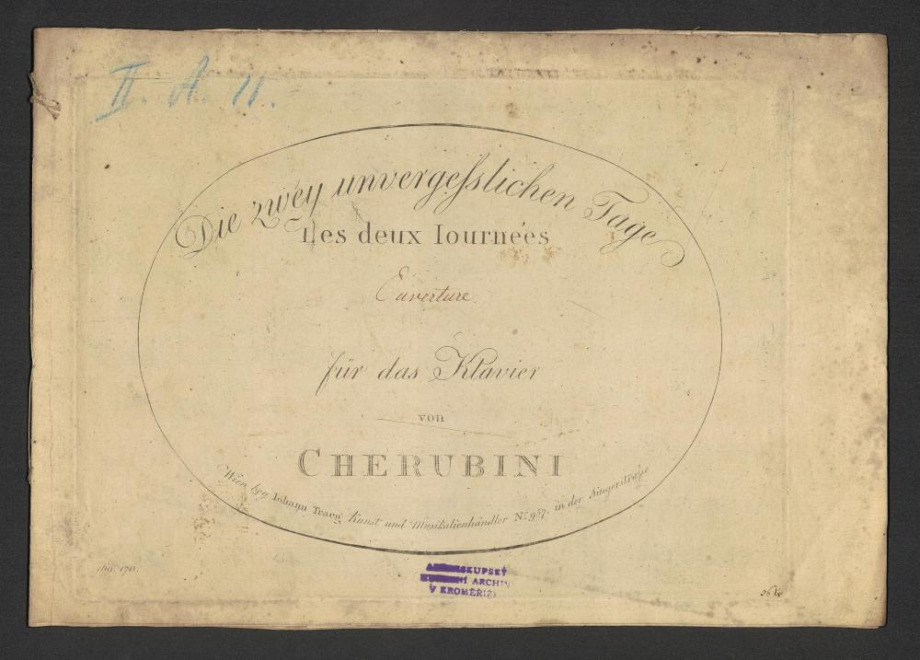 II. A. 11.
Die zwey unvergesslichen Tage
Les deux Iournées
Ouverture
für das Klavier
von
CHERUBINI
Wien bey Iohann Traeg Kunst und Musikalienhändler N.º 957. in der Singerstrasse
169. 170.
V KROMĚŘÍŽI